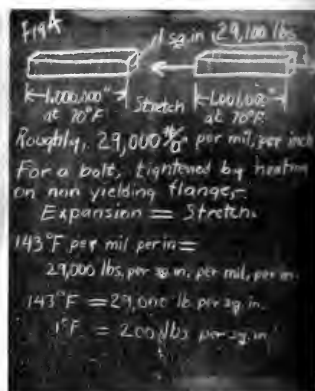 Fig A
1 sq. in. 29,100 lbs
1,000,000" Stretch 1,001,000"
at 70°F. at 70°F.
Roughly, 29,000 #/□" per mil, per inch
For a bolt, tightened by heating
on non yielding flange,-
Expansion = Stretch.
143°F per mil per in =
29,000 lbs, per sq in, per mil, per in.
143°F = 29,000 lb per sq. in.
1°F = 200 lbs per sq. in